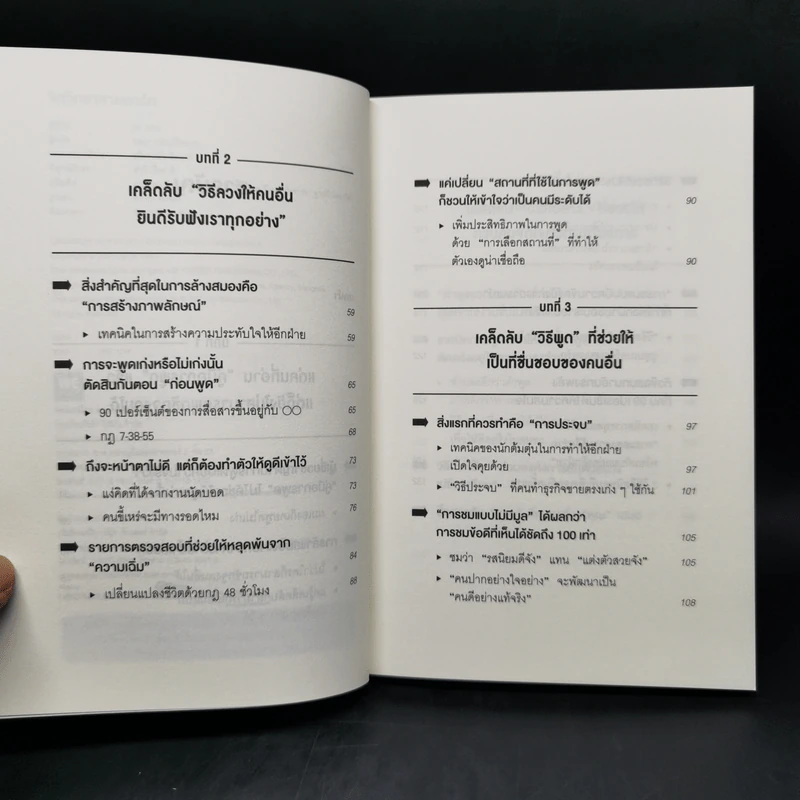 บทที่ 2
เคล็ดลับ “วิธีลวงให้คนอื่น
ยินดีรับฟังเราทุกอย่าง”
สิ่งสำคัญที่สุดในการล้างสมองคือ
“การสร้างภาพลักษณ์” 59
เทคนิคในการสร้างความประทับใจให้อีกฝ่าย 59
การจะพูดเก่งหรือไม่เก่งนั้น
ตัดสินกันตอน “ก่อนพูด” 65
90 เปอร์เซ็นต์ของการสื่อสารขึ้นอยู่กับ ○○ 65
กฎ 7-38-55 68
ถึงจะหน้าตาไม่ดี แต่ก็ต้องทำตัวให้ดูดีเข้าไว้ 73
แง่คิดที่ได้จากงานนัดบอด 73
คนขี้เหร่จะมีทางรอดไหม 76
รายการตรวจสอบที่ช่วยให้หลุดพ้นจาก
“ความเฉิ่ม” 84
เปลี่ยนแปลงชีวิตด้วยกฎ 48 ชั่วโมง 88
แค่เปลี่ยน “สถานที่ที่ใช้ในการพูด”
ก็ชวนให้เข้าใจว่าเป็นคนมีระดับได้ 90
เพิ่มประสิทธิภาพในการพูด
ด้วย “การเลือกสถานที่” ที่ทำให้
ตัวเองดูน่าเชื่อถือ 90
บทที่ 3
เคล็ดลับ “วิธีพูด” ที่ช่วยให้
เป็นที่ชื่นชอบของคนอื่น
สิ่งแรกที่ควรทำคือ “การประจบ” 97
เทคนิคของนักต้มตุ๋นในการทำให้อีกฝ่าย
เปิดใจคุยด้วย 97
“วิธีประจบ” ที่คนทำธุรกิจขายตรงเก่ง ๆ ใช้กัน 101
“การชมแบบไม่มีมูล” ได้ผลกว่า
การชมข้อดีที่เห็นได้ชัดถึง 100 เท่า 105
ชมว่า “รสนิยมดีจัง” แทน “แต่งตัวสวยจัง” 105
“คนปากอย่างใจอย่าง” จะพัฒนาเป็น
“คนดีอย่างแท้จริง” 108